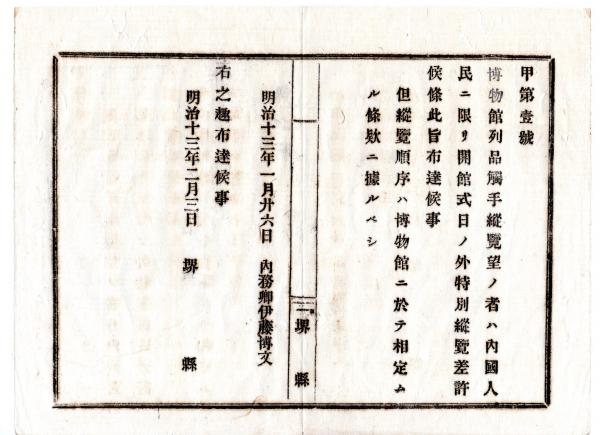 甲第壹號
博物館列品觸手縱覽望ノ者ハ內國人
民ニ限リ開館式日ノ外特別縱覽差許
候條此旨布達候事
但縱覽順序ハ博物館ニ於テ相定ム
ル條欵ニ據ルベシ
一堺縣
明治十三年一月廿六日 內務卿伊藤博文
右之趣布達候事
明治十三年二月三日 堺縣